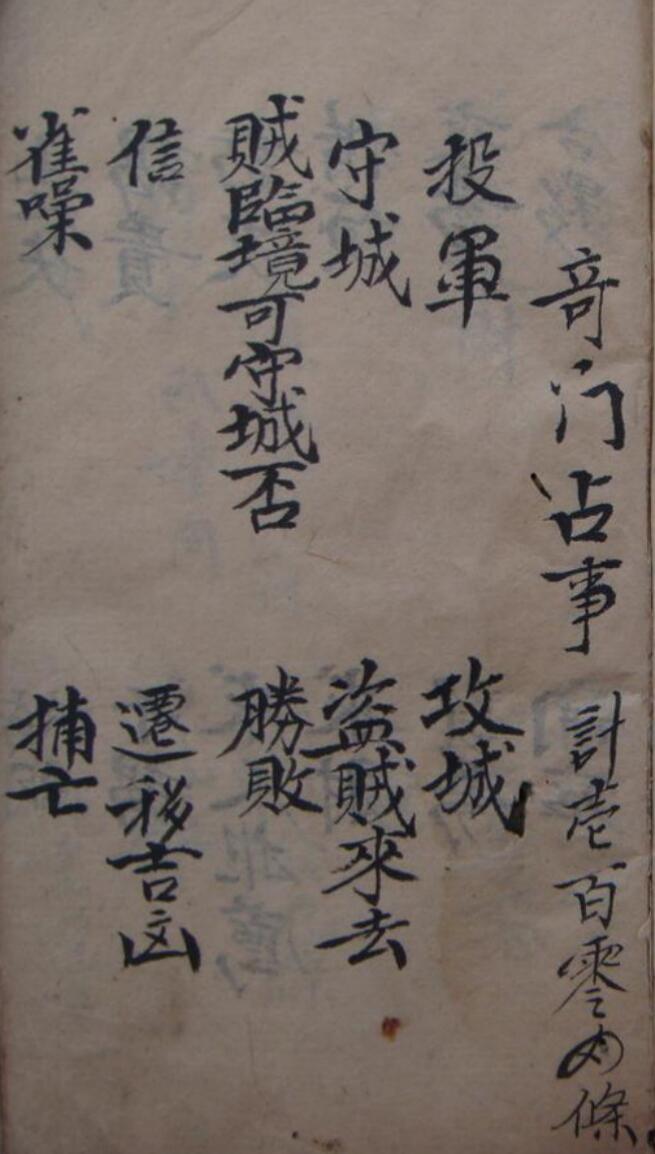 奇门占事 計壱百零四條
投軍 攻城
守城 盗賊來去
賊臨境可守城否 勝敗
信 遷移吉凶
雀噪 捕亡